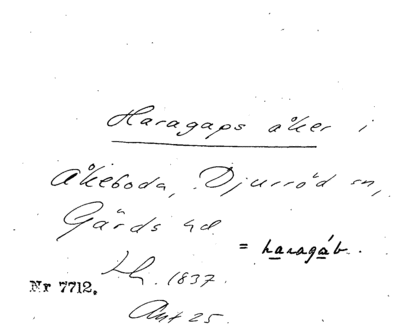 Haragaps åker i
Åkeboda, Djurröd sn,
Gärds hd
= haragáb.
Lh. 1837.
Nr 7712.
Ant 25.